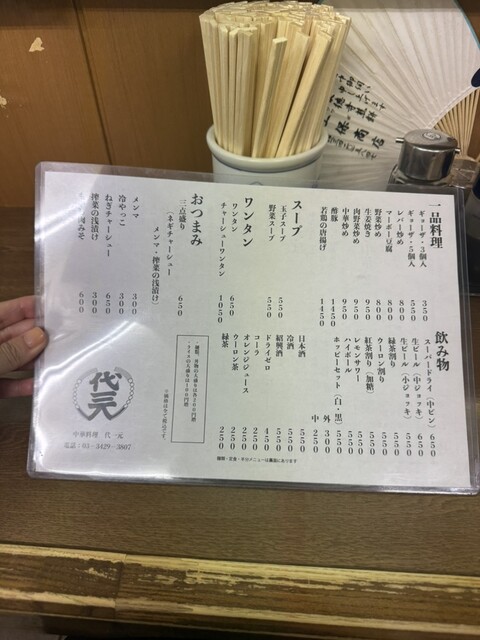 一品料理
ギョーザ・3個入 350
ギョーザ・5個入 550
レバー炒め 800
マーボー豆腐 800
野菜炒め 800
生姜焼き 950
肉野菜炒め 950
中華炒め 950
酢豚 1450
若鶏の唐揚げ 1450
スープ
玉子スープ 550
野菜スープ 550
ワンタン
ワンタン 650
チャーシューワンタン 1050
おつまみ
三点盛り 650
（ネギチャーシュー
メンマ・搾菜の浅漬け）
メンマ 300
冷やっこ 300
ねぎチャーシュー 650
搾菜の浅漬け 300
肉みそ 600
飲み物
スーパードライ（中ビン） 650
生ビール（中ジョッキ）
生ビール（小ジョッキ）
緑茶割り 550
ウーロン割り 550
紅茶割り（加糖） 550
レモンサワー 550
ハイボール 550
ホッピーセット（白・黒） 550
外 300
中 250
日本酒 550
冷酒 550
紹興酒
ドライゼロ 450
コーラ 250
オレンジジュース 250
ウーロン茶 250
緑茶 250
代一元
中華料理 代一元
電話：03-3429-3807
商店